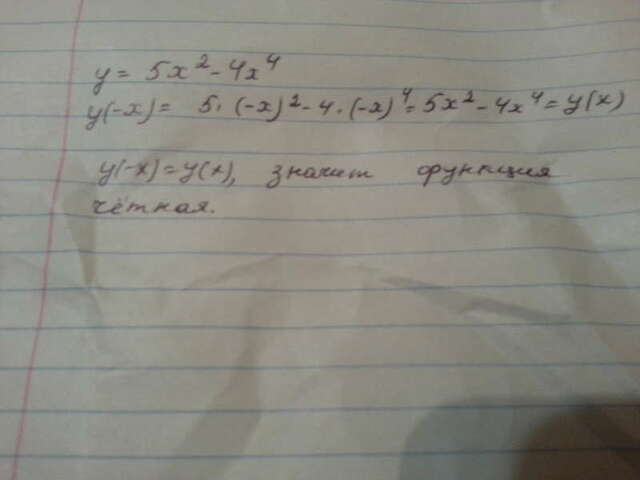 y = 5x² - 4x⁴
y(-x) = 5 · (-x)² - 4 · (-x)⁴ = 5x² - 4x⁴ = y(x)
y(-x) = y(x), значит функция
чётная.